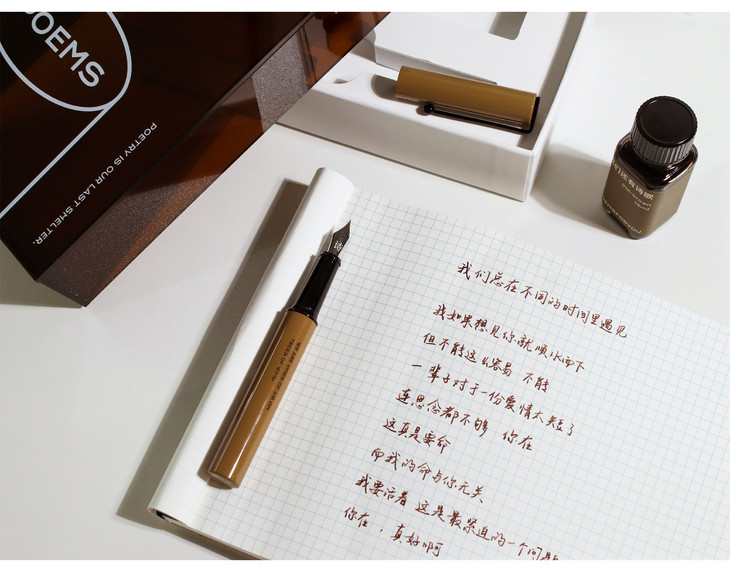 POEMS
POETRY IS OUR LAST SHELTER.
诗
们还有诗歌
我们总在不同的时间里遇见
我如果想见你,就顺水而下
但不能这么容易 不能
一辈子对于一份爱情太短了
连思念都不够 你在
这真是要命
而我的命与你无关
我要活着 这是最紧迫的一个问题
你在,真好啊